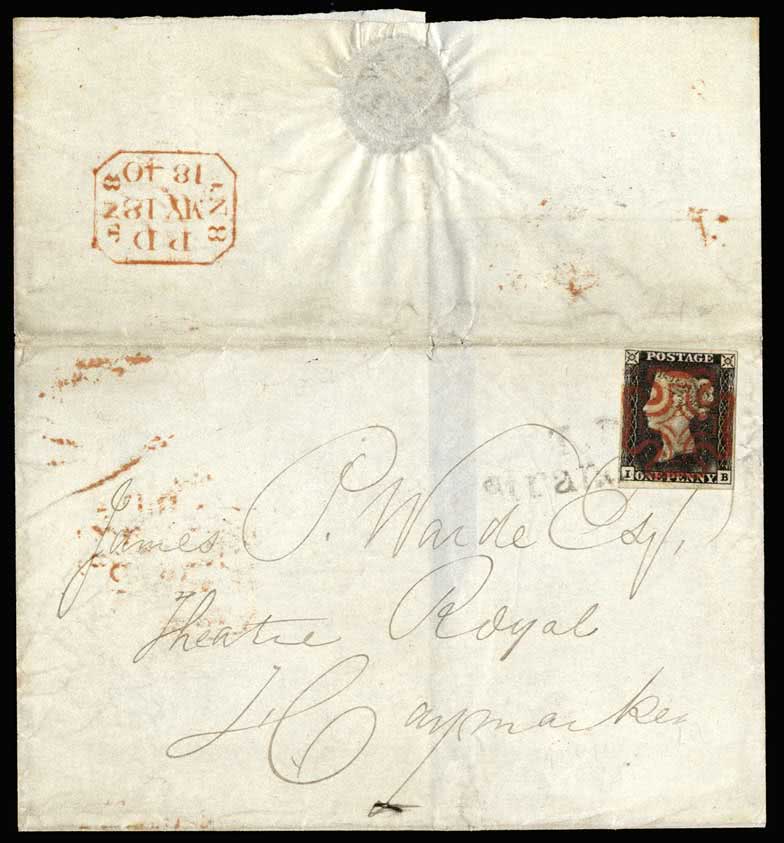 8 P D 8
N MY 18 N
18 40
POSTAGE
I ONE PENNY B
James P. Warde Esq.,
Theatre Royal
Haymarket